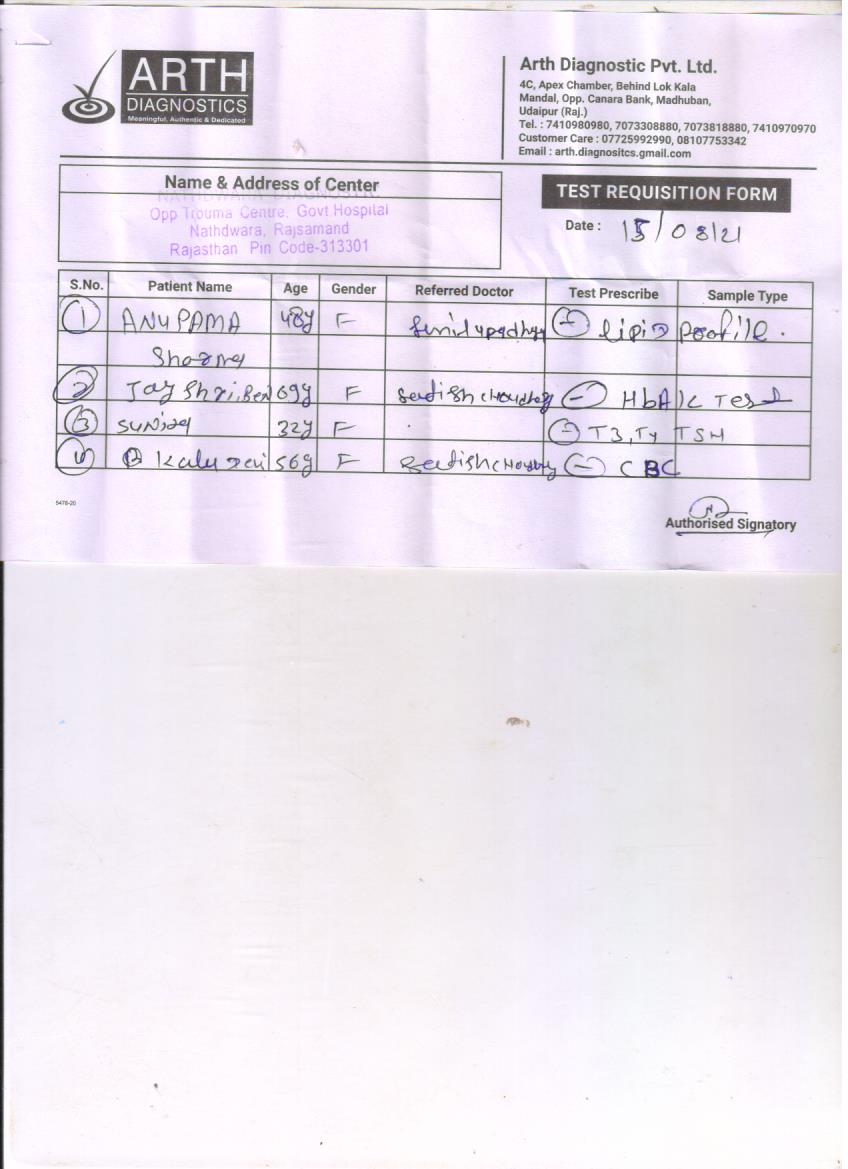 ARTH
DIAGNOSTICS
Meaningful, Authentic & Dedicated
Arth Diagnostic Pvt. Ltd.
4C, Apex Chamber, Behind Lok Kala
Mandal, Opp. Canara Bank, Madhuban,
Udaipur (Raj.)
Tel. : 7410980980, 7073308880, 7073818880, 7410970970
Customer Care : 07725992990, 08107753342
Email : arth.diagnositcs.gmail.com
Name & Address of Center
NATHDWARA DIAGNOSTIC
Opp Trouma Centre, Govt.Hospital
Nathdwara, Rajsamand
Rajasthan Pin Code-313301
TEST REQUISITION FORM
Date : 15/08/21
S.No. Patient Name Age Gender Referred Doctor Test Prescribe Sample Type
1 ANUPAMA 48y F upadhyay lipid profile.
Sharma
2 Jay Shri,Ben 69y F Satish choudhary HbA1c Test
3 32y F T3,T4 TSH
4 Kalu 56y F Satish C CBC
5478-20
Authorised Signatory